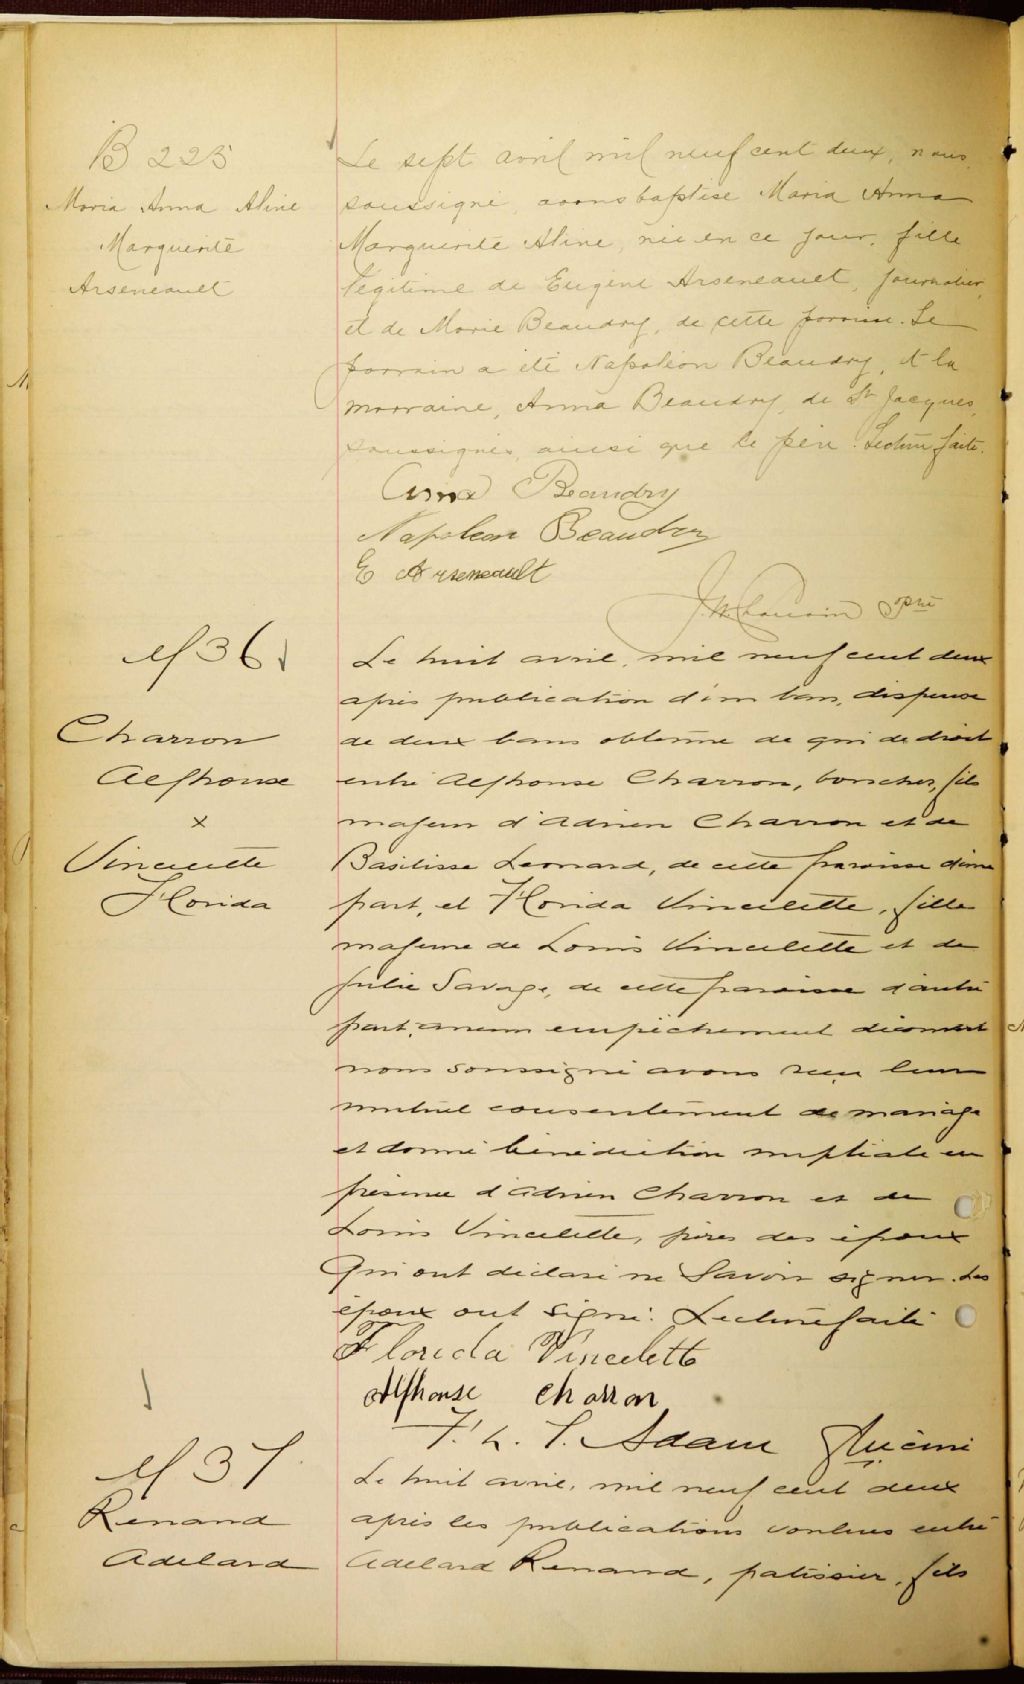 B 225
Maria Anna Aline
Marguerite
Arseneault
Le sept avril mil neuf cent deux, nous
soussigné, avons baptisé Maria Anna
Marguerite Aline, née en ce jour, fille
légitime de Eugène Arseneault, journalier,
et de Marie Beaudry, de cette paroisse. Le
parrain a été Napoléon Beaudry, et la
marraine, Anna Beaudry, de St Jacques,
soussignés, ainsi que le père. Lecture faite.
Anna Beaudry
Napoleon Beaudry
E Arseneault
ptre
M 36
Charron
Alphonse
x
Vincelette
Florida
Le huit avril, mil neuf cent deux
après publication d'un ban, dispense
de deux bans obtenue de qui de droit
entre Alphonse Charron, boucher, fils
majeur d'Adrien Charron et de
Basilisse Leonard, de cette paroisse d'une
part, et Florida Vincelette, fille
majeure de Louis Vincelette et de
Julie Savage, de cette paroisse d'autre
part, aucun empêchement découvert
nous soussigné avons reçu leur
mutuel consentement de mariage
et donné bénédiction nuptiale en
présence d'Adrien Charron et de
Louis Vincelette, pères des époux
Qui ont déclaré ne Savoir signer. Les
époux ont signé: Lecture faite
Florida Vincelette
Alphonse Charron
F. L. T. Adam Ptre curé
M 37
Renaud
Adelard
Le huit avril, mil neuf cent deux
après les publications voulues entre
Adelard Renaud, patissier, fils